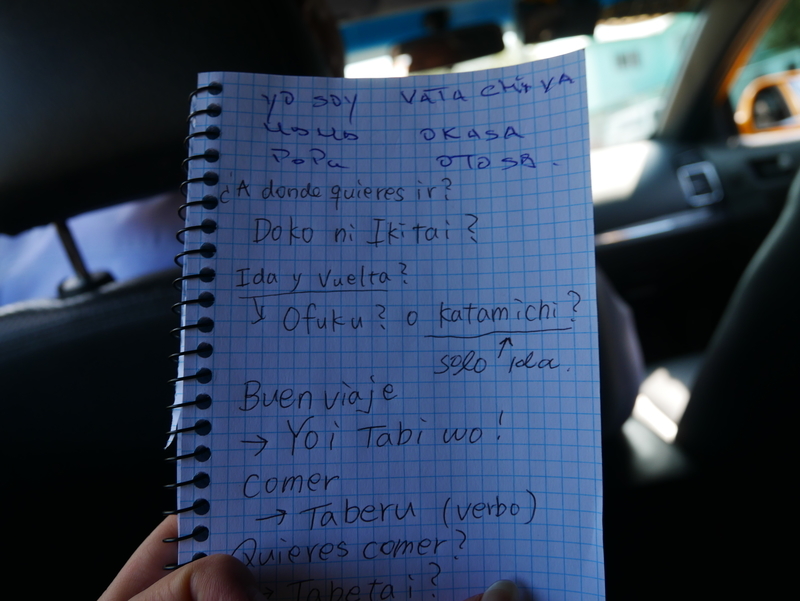 YO SOY VATA CHI VA
OKASA
PaPa OTOSA.
¿A donde quieres ir?
Doko ni Ikitai?
Ida y Vuelta?
↓ Ofuku? o katamichi?
solo ↑ ida.
Buen viaje
→ Yoi Tabi wo!
comer
→ Taberu (verbo)
Quieres comer?
→ Tabetai?